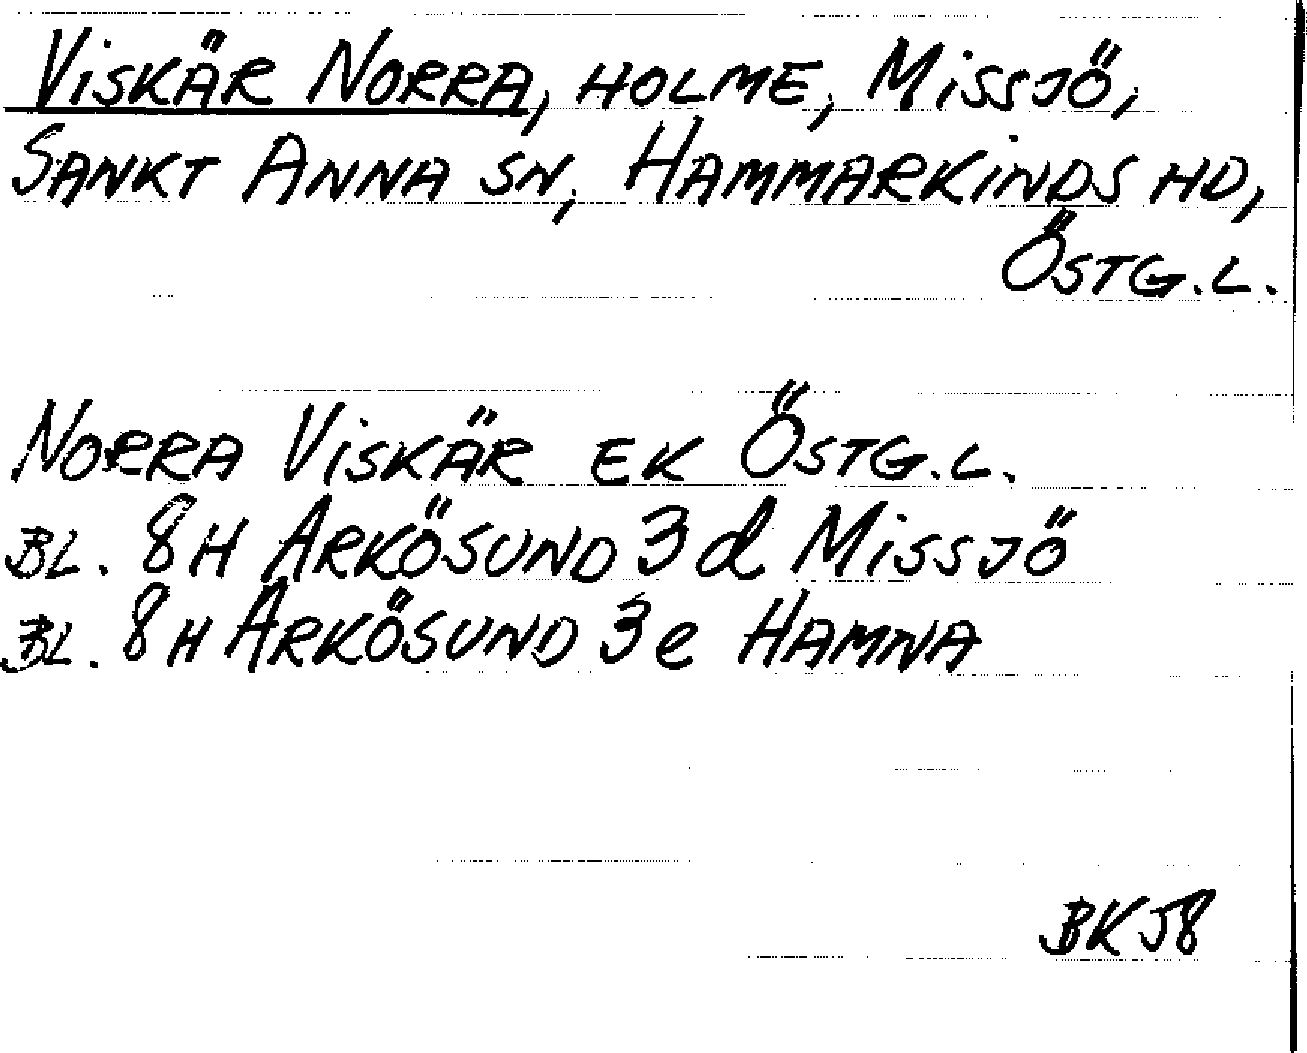 Viskär Norra, holme, Missjö,
Sankt Anna sn, Hammarkinds hd,
Östg.l.
Norra Viskär ek Östg.l.
Bl. 8H Arkösund 3d Missjö
Bl. 8H Arkösund 3e Hamna
BK58